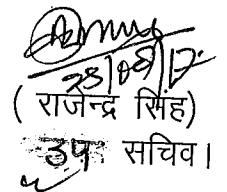 28/08/17
( राजेन्द्र सिंह)
उप सचिव।